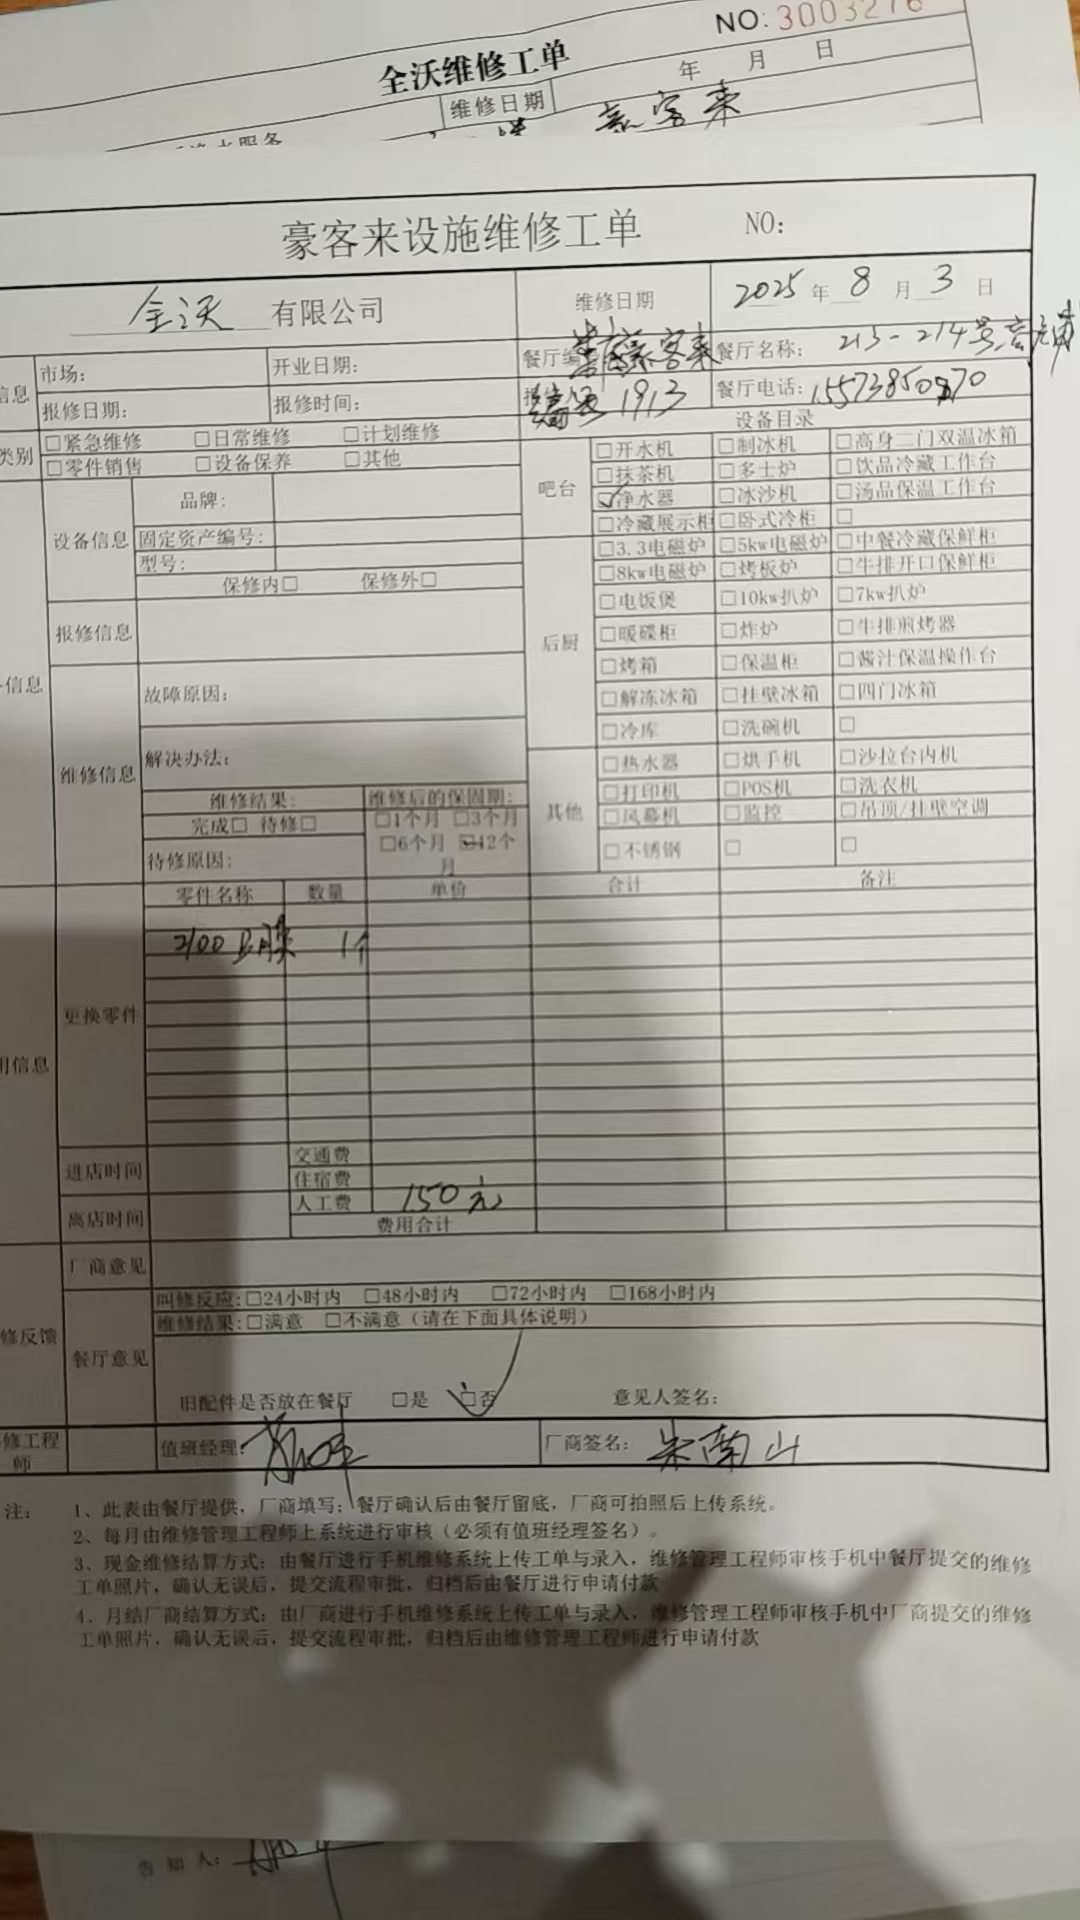 NO: 3003276
全沃维修工单
维修日期 年 月 日
豪客来
豪客来设施维修工单 NO:
全沃 有限公司 维修日期 2025 年 8 月 3 日
信息 市场: 开业日期: 餐厅编 豪客来 餐厅名称: 213-214号
报修日期: 报修时间: 1913 餐厅电话:
类别 □紧急维修 □日常维修 □计划维修 设备目录
□零件销售 □设备保养 □其他
吧台 □开水机 □制冰机 □高身二门双温冰箱
□抹茶机 □多士炉 □饮品冷藏工作台
☑净水器 □冰沙机 □汤品保温工作台
□冷藏展示柜 □卧式冷柜 □
设备信息 品牌:
固定资产编号:
型号:
保修内□ 保修外□
后厨 □3.3电磁炉 □5kw电磁炉 □中餐冷藏保鲜柜
□8kw电磁炉 □烤板炉 □牛排开口保鲜柜
□电饭煲 □10kw扒炉 □7kw扒炉
□暖碟柜 □炸炉 □牛排煎烤器
□烤箱 □保温柜 □酱汁保温操作台
□解冻冰箱 □挂壁冰箱 □四门冰箱
□冷库 □洗碗机 □
报修信息
信息
维修信息 故障原因:
解决办法:
维修结果: 维修后的保固期:
完成□ 待修□ □1个月 □3个月
□6个月 ☑12个月
待修原因:
其他 □热水器 □烘手机 □沙拉台内机
□打印机 □POS机 □洗衣机
□风幕机 □监控 □吊顶/挂壁空调
□不锈钢 □ □
零件名称 数量 单价 合计 备注
2100 膜 1个
更换零件
用信息
进店时间 交通费
住宿费
人工费 150元
离店时间 费用合计
厂商意见
修反馈 餐厅意见 叫修反应:□24小时内 □48小时内 □72小时内 □168小时内
维修结果:□满意 □不满意(请在下面具体说明)
旧配件是否放在餐厅 □是 ☑否 意见人签名:
修工程师 值班经理: 厂商签名: 朱南山
注: 1、此表由餐厅提供,厂商填写;餐厅确认后由餐厅留底,厂商可拍照后上传系统。
2、每月由维修管理工程师上系统进行审核(必须有值班经理签名)。
3、现金维修结算方式:由餐厅进行手机维修系统上传工单与录入,维修管理工程师审核手机中餐厅提交的维修
工单照片,确认无误后,提交流程审批,归档后由餐厅进行申请付款
4、月结厂商结算方式:由厂商进行手机维修系统上传工单与录入,维修管理工程师审核手机中厂商提交的维修
工单照片,确认无误后,提交流程审批,归档后由维修管理工程师进行申请付款
告知人: